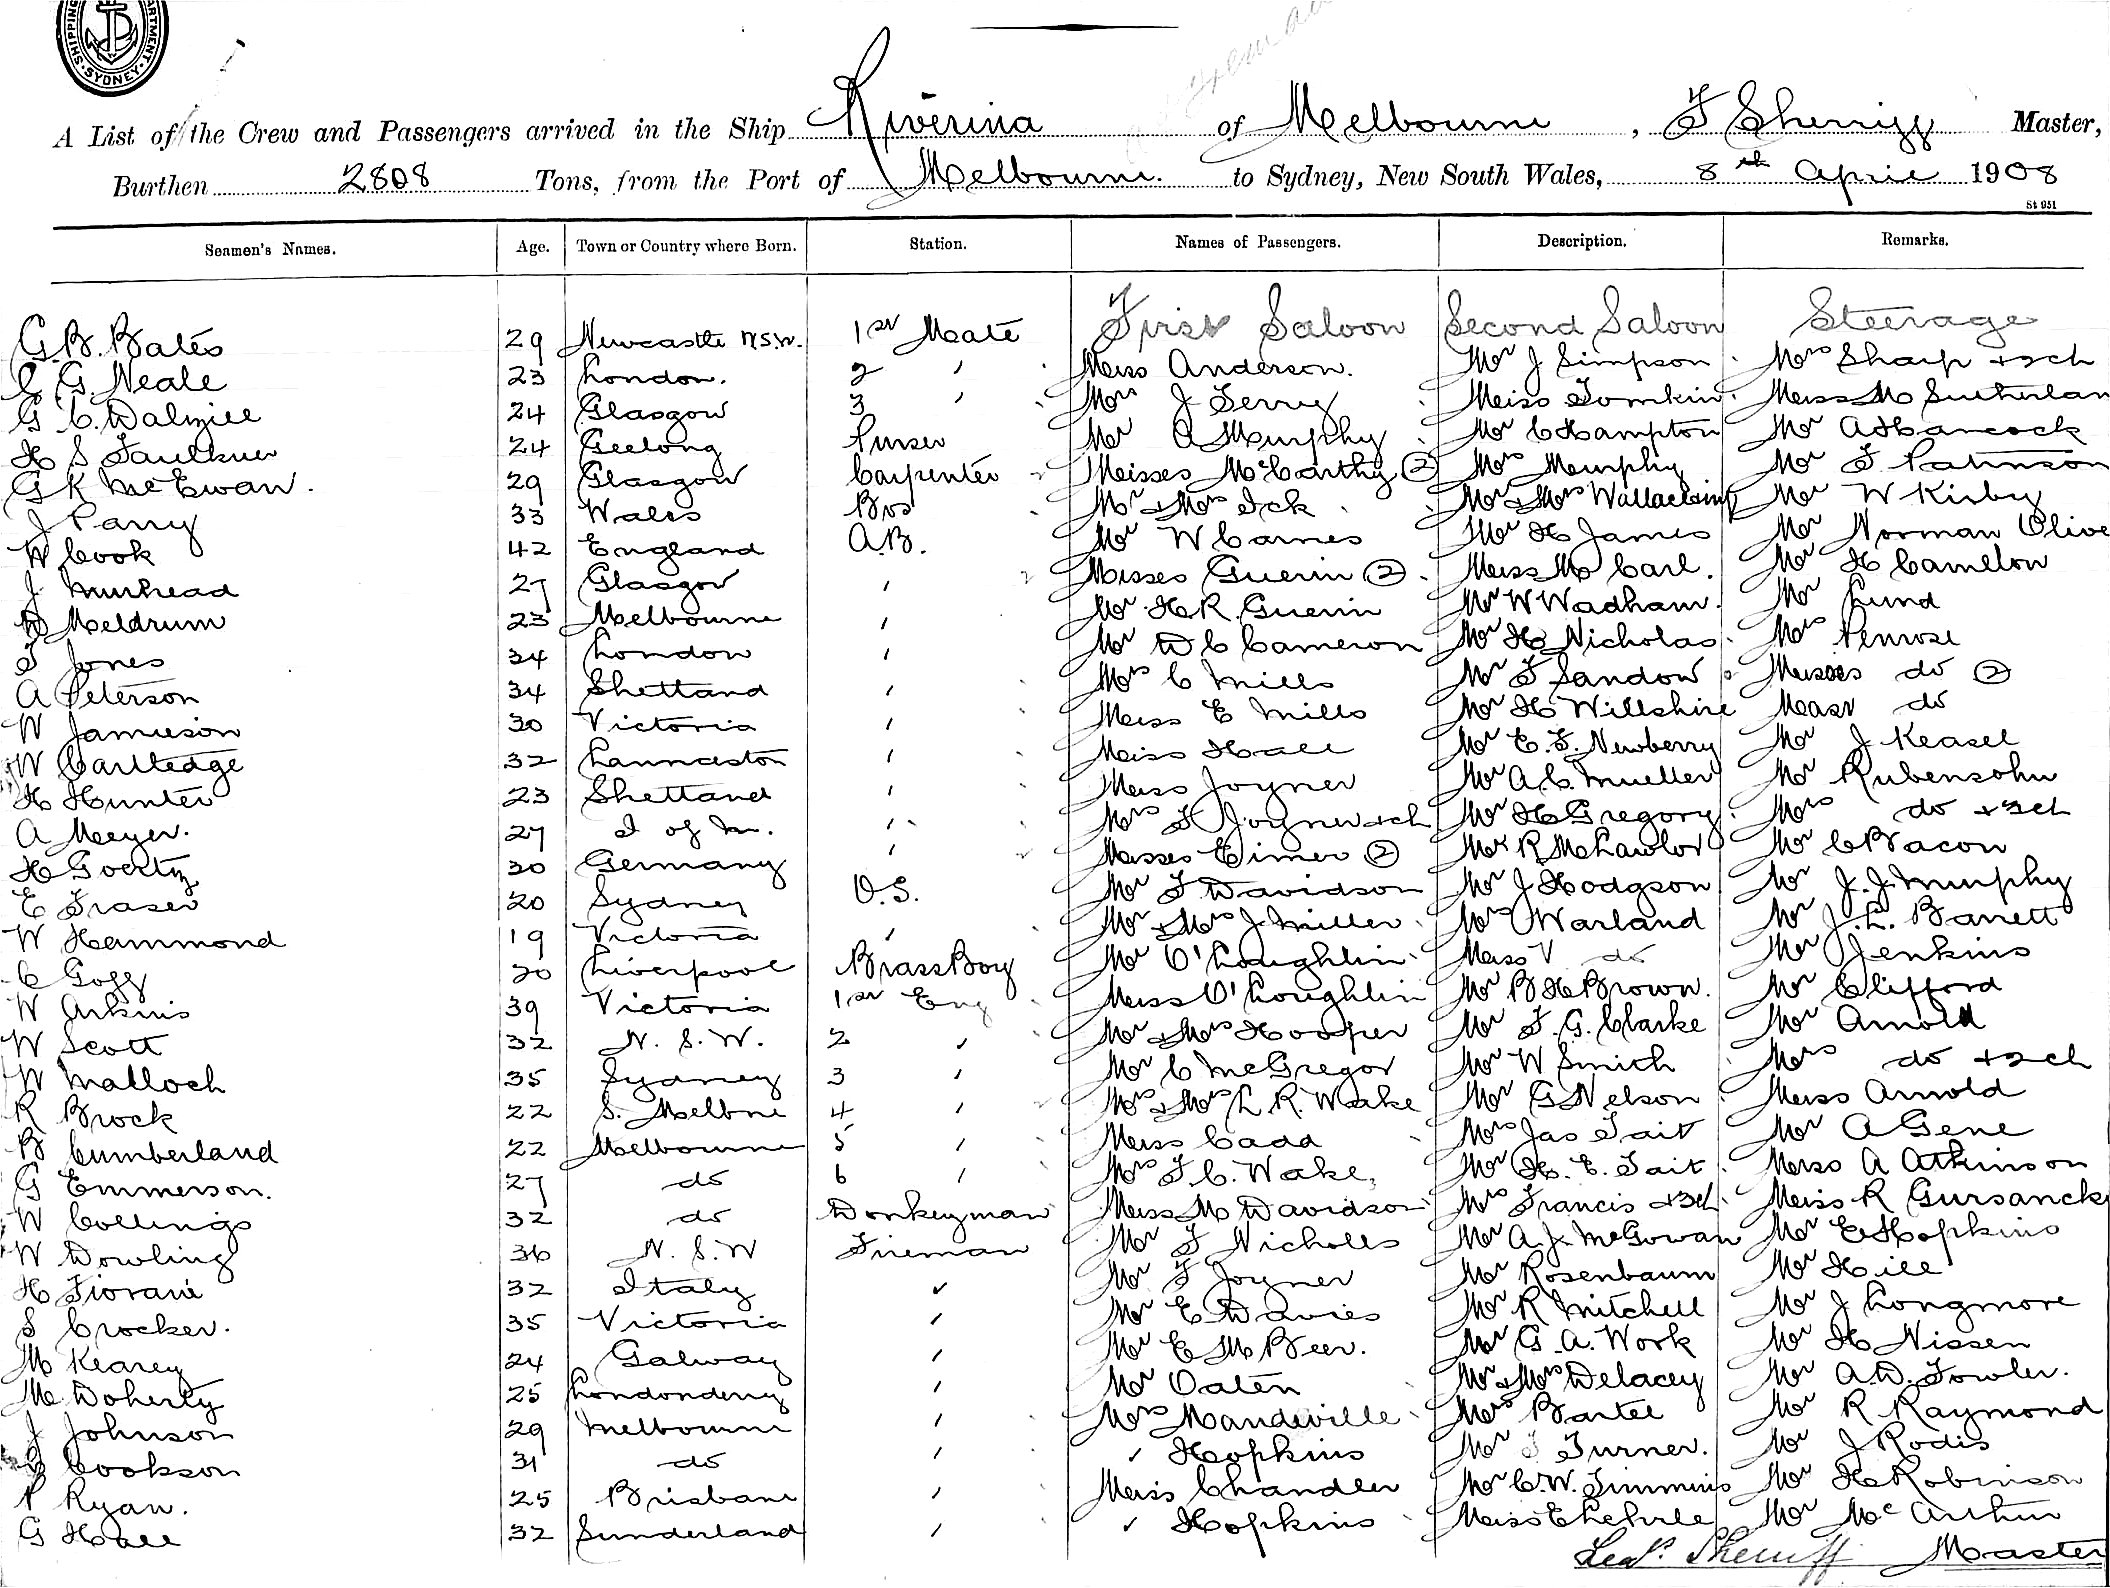 SHIPPING DEPARTMENT SYDNEY
A List of the Crew and Passengers arrived in the Ship Riverina of Melbourne, Sherriff Master,
Burthen 2808 Tons, from the Port of Melbourne. to Sydney, New South Wales, 8th April 1908
St 951
Seamen's Names. Age. Town or Country where Born. Station. Names of Passengers. Description. Remarks.
First Saloon Second Saloon Steerage
G. B. Bates 29 Newcastle N.S.W. 1st Mate
G Neale 23 London. 2 " Miss Anderson. Mr J Simpson Mrs Sharp + 2 ch
G C. Dalziell 24 Glasgow 3 " Mrs J Terry Miss Tomkin Miss M Sutherlan
H S Faulkner 24 Geelong Purser Mr A Murphy Mr C Hampton Mr A Hancock
G K McEwan. 29 Glasgow Carpenter Misses McCarthy (2) Mrs Murphy Mr Patinson
J Parry 33 Wales Bos Mr & Mrs Ick Mr & Mrs Mr W Kirby
W Cook 42 England A.B. Mr W Carnes Mr H James Mr Norman Olive
J Muirhead 27 Glasgow " Misses Guerin (2) Miss M Carl. Mr H Camelon
Meldrum 23 Melbourne " Mr H R Guerin Mr W Wadham. Mr Lund
Jones 34 London " Mr D C Cameron Mr H Nicholas Mrs Penrose
A Peterson 34 Shetland " Mrs C Mills Mr Sandow Misses do (2)
W Jamieson 30 Victoria " Miss E Mills Mr H Willshire Mast do
W Cartledge 32 Launceston " Miss Hall Mr E. F. Newberry Mr J Keasel
H Hunter 23 Shetland " Miss Joyner Mr A. C. Mueller Mr Rubensohn
A Meyer. 27 I of M. " Mrs Joyner + ch Mr H Gregory Mrs do + 3 ch
H Goertz 30 Germany " Misses Eimer (2) Mr R McLawlor Mr C Bacon
E Fraser 20 Sydney O.S. Mr Davidson Mr J Hodgson Mr J. J. Murphy
W Hammond 19 Victoria " Mr & Mrs J Miller Mrs Warland Mr J. L. Barrett
C Goff 20 Liverpool Brass Boy Mr O'Loughlin Miss V do Mr Jenkins
W Arkins 39 Victoria 1st Eng Miss O'Loughlin Mr B H Brown. Mr Clifford
W Scott 32 N. S. W. 2 " Mr & Mrs Hooper Mr F. G. Clarke Mr Arnold
W Malloch 35 Sydney 3 " Mr C McGregor Mr W Smith Mrs do + 2 ch
R Brock 22 S. Melbne 4 " Mr & Mrs L. R. Wake Mr G Nelson Miss Arnold
B Cumberland 22 Melbourne 5 " Miss Cadd Mrs Jas Tait Mr A Gene
G Emmerson. 27 do 6 " Mrs F. C. Wake, Mr H. E. Tait Miss A Atkinson
W Collings 32 do Donkeyman Miss M Davidson Mrs Francis + 3 ch Miss R Gursanck
W Dowling 36 N. S. W Fireman Mr F Nicholls Mr A. J. McGowan Mr E Hopkins
H Fiorani 32 Italy " Mr F Joyner Mr Rosenbaum Mr Hill
S Crocker. 35 Victoria " Mr E Davies Mr R Mitchell Mr J Longmore
M Kearey 24 Galway " Mr E M Beer. Mr G. A. Work Mr H Nissen
M. Doherty 25 Londonderry " Mr Oaten Mr & Mrs Delacey Mr A. D. Fowler.
J Johnson 29 Melbourne " Mrs Mandeville Mrs Bartel Mr R Raymond
Cookson 31 do " " Hopkins Mr Turner. Mr J Rodis
P Ryan. 25 Brisbane " Miss Chandler Mr C. W. Timmins Mr H Robinson
G Hall 32 Sunderland " " Hopkins Miss Mr McArthur
Sherriff Master